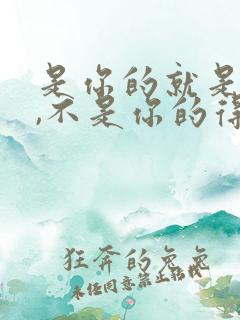 是你的就是
,不是你的得
狂奔的兔兔
未经同意禁止转载